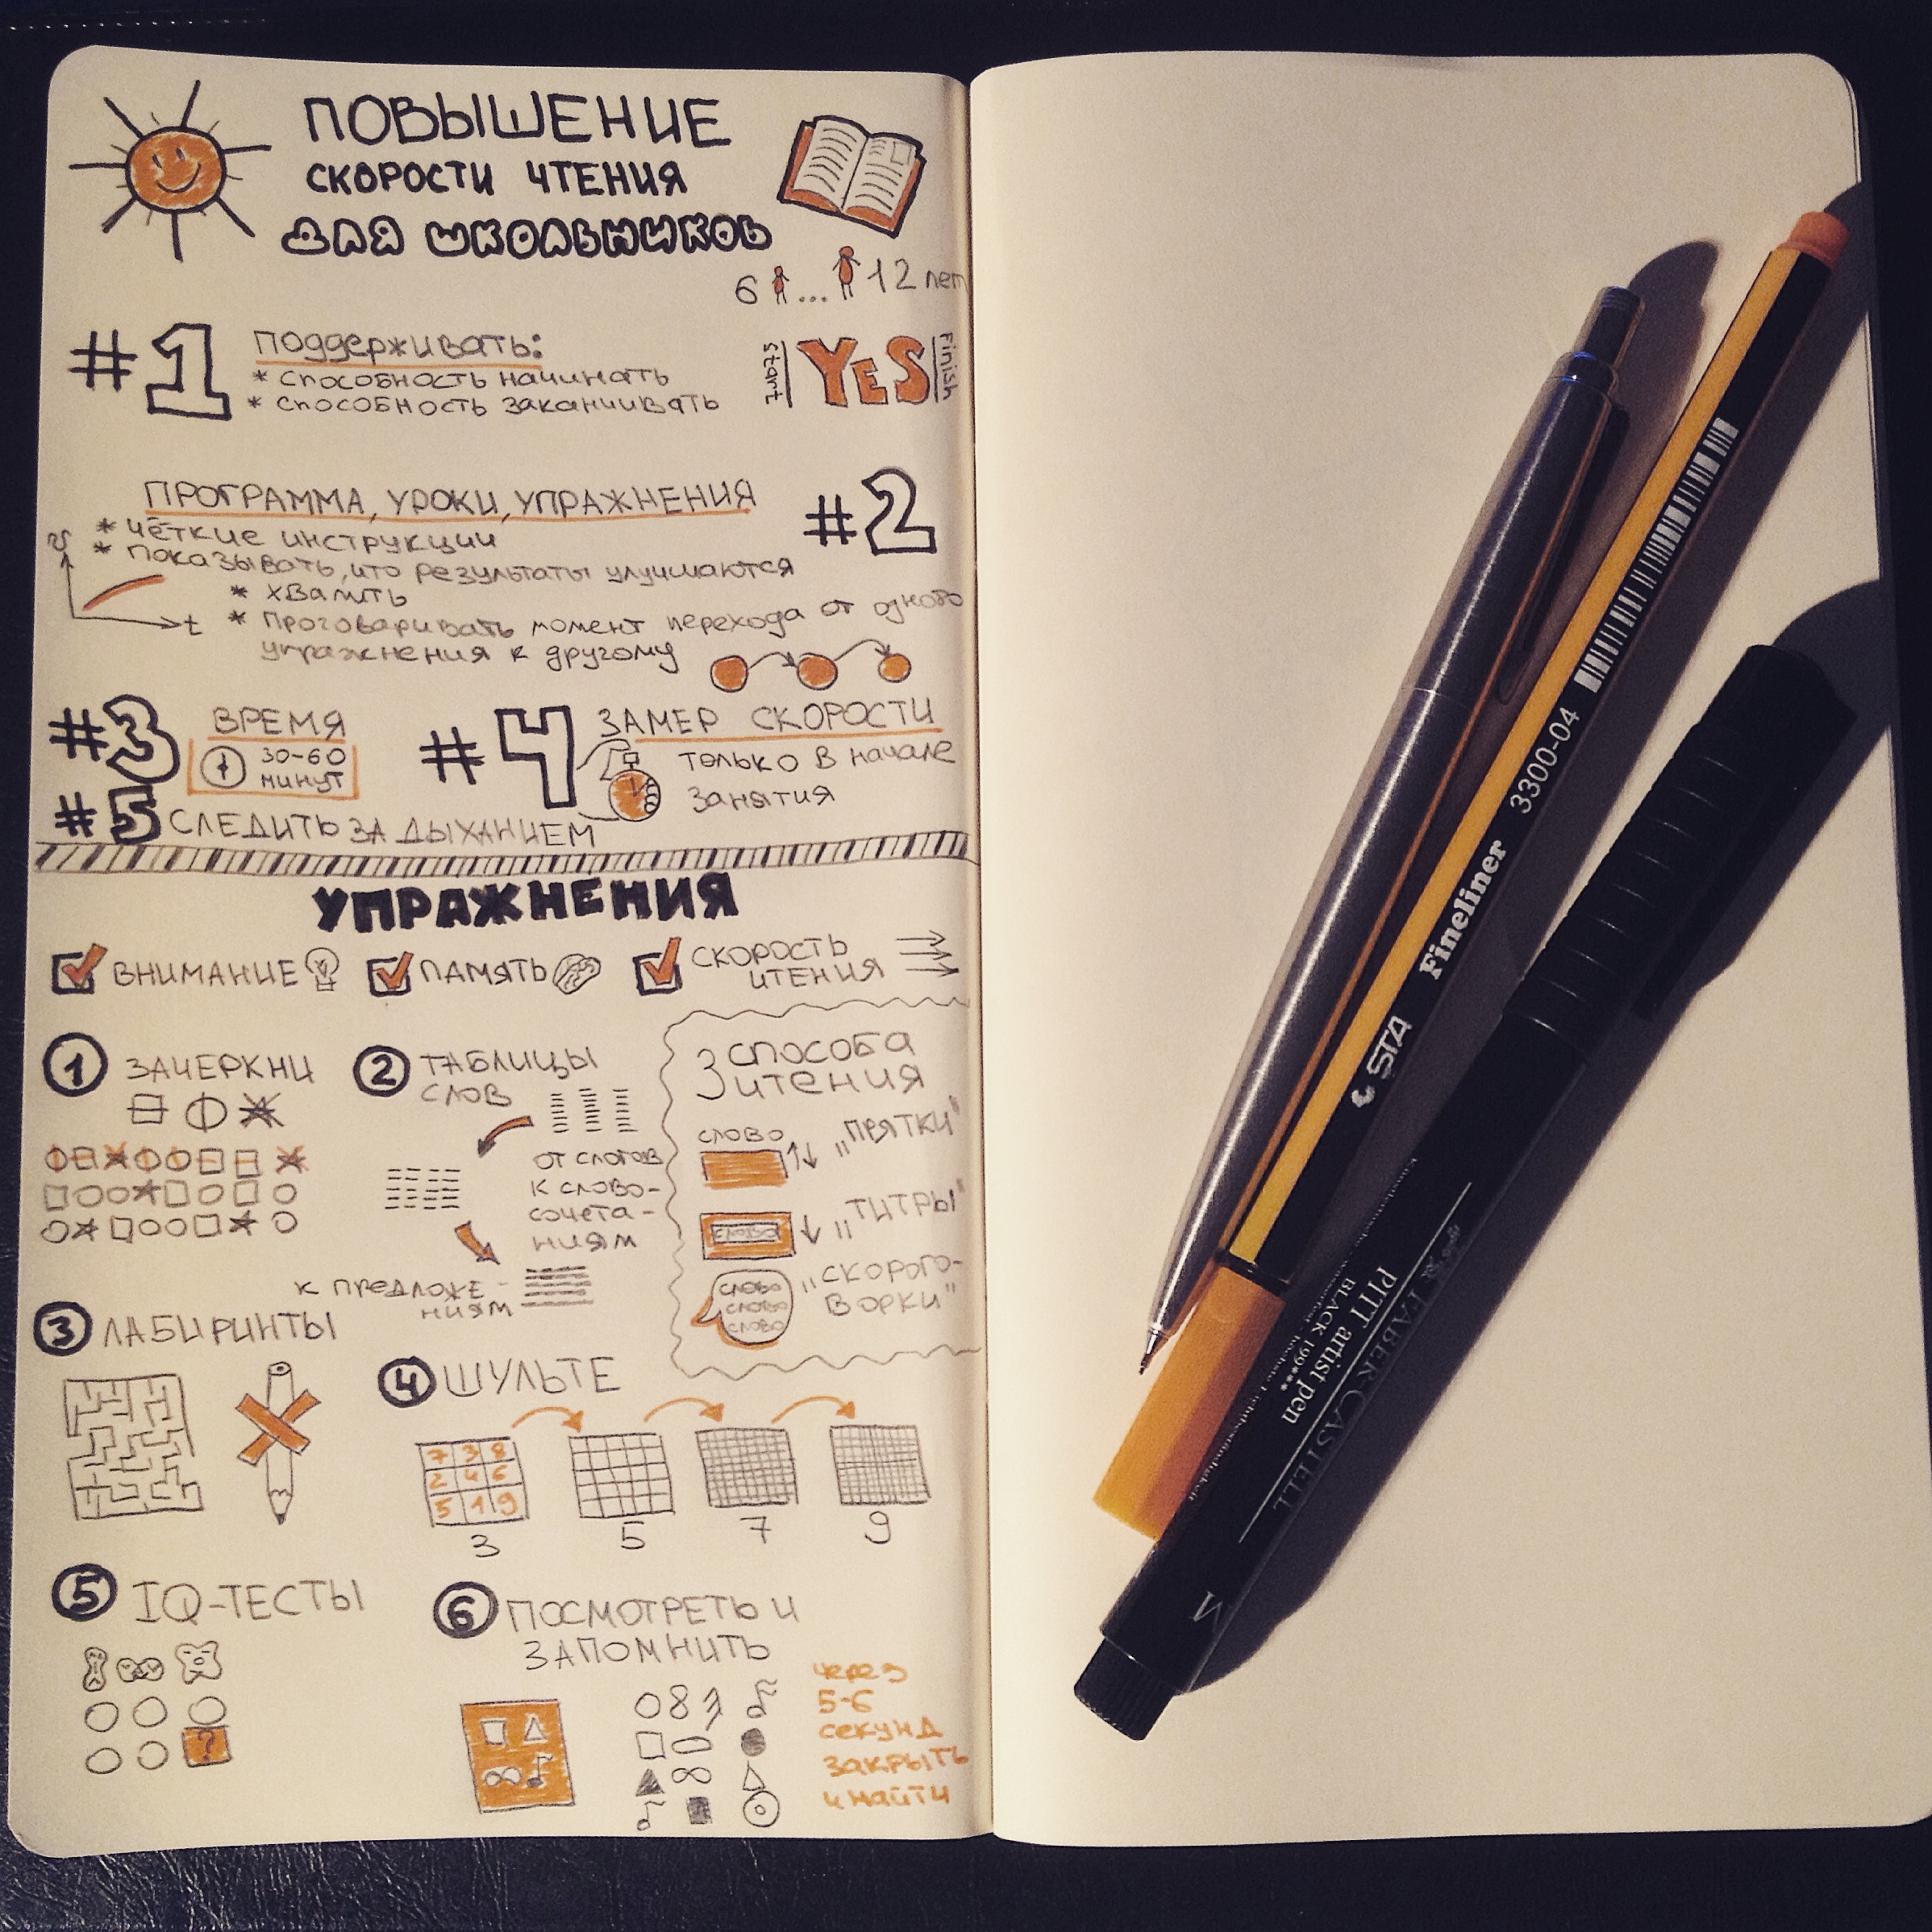 ПОВЫШЕНИЕ
СКОРОСТИ ЧТЕНИЯ
ДЛЯ ШКОЛЬНИКОВ
6 ... 12 лет
#1
Поддерживать:
* способность начинать
* способность заканчивать
start
YES
Finish
ПРОГРАММА, УРОКИ, УПРАЖНЕНИЯ
#2
* чёткие инструкции
* показывать, что результаты улучшаются
* хвалить
* проговаривать момент перехода от одного
упражнения к другому
v
t
#3
ВРЕМЯ
30-60
минут
#4
ЗАМЕР СКОРОСТИ
только в начале
занятия
#5 СЛЕДИТЬ ЗА ДЫХАНИЕМ
УПРАЖНЕНИЯ
ВНИМАНИЕ
ПАМЯТЬ
СКОРОСТЬ
ЧТЕНИЯ
1 ЗАЧЕРКНИ
2 ТАБЛИЦЫ
СЛОВ
от слогов
к слово-
сочета-
ниям
к предложе-
ниям
3 способа
чтения
слово
"ПРЯТКИ"
слово
"ТИТРЫ"
слово
слово
слово
"СКОРОГО-
ВОРКИ"
3 ЛАБИРИНТЫ
4 ШУЛЬТЕ
7 3 8
2 4 6
5 1 9
3
5
7
9
5 IQ-ТЕСТЫ
?
6 ПОСМОТРЕТЬ И
ЗАПОМНИТЬ
через
5-6
секунд
закрыть
и найти
STA
Fineliner 3300-04
FABER-CASTELL
PITT artist pen
BLACK 199***
M